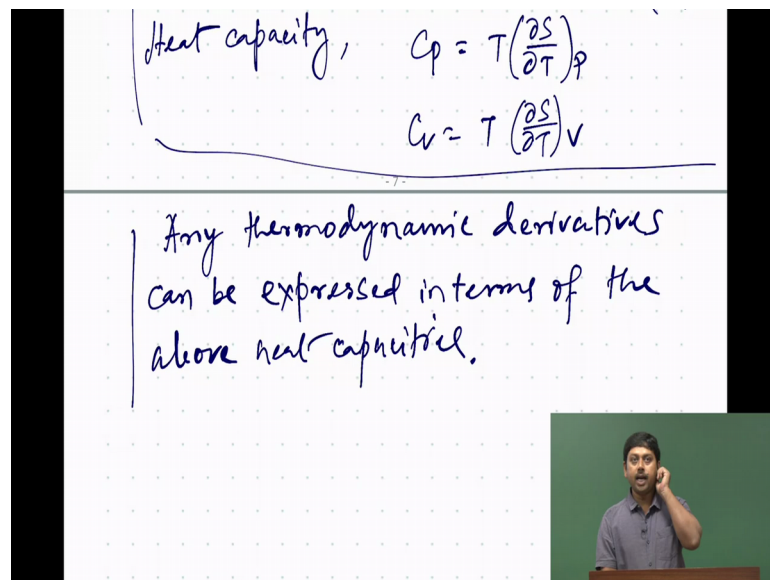 Heat capacity, Cp = T(∂S/∂T)P
Cv = T(∂S/∂T)V
-7-
Any thermodynamic derivatives
can be expressed in terms of the
above heat capacities.